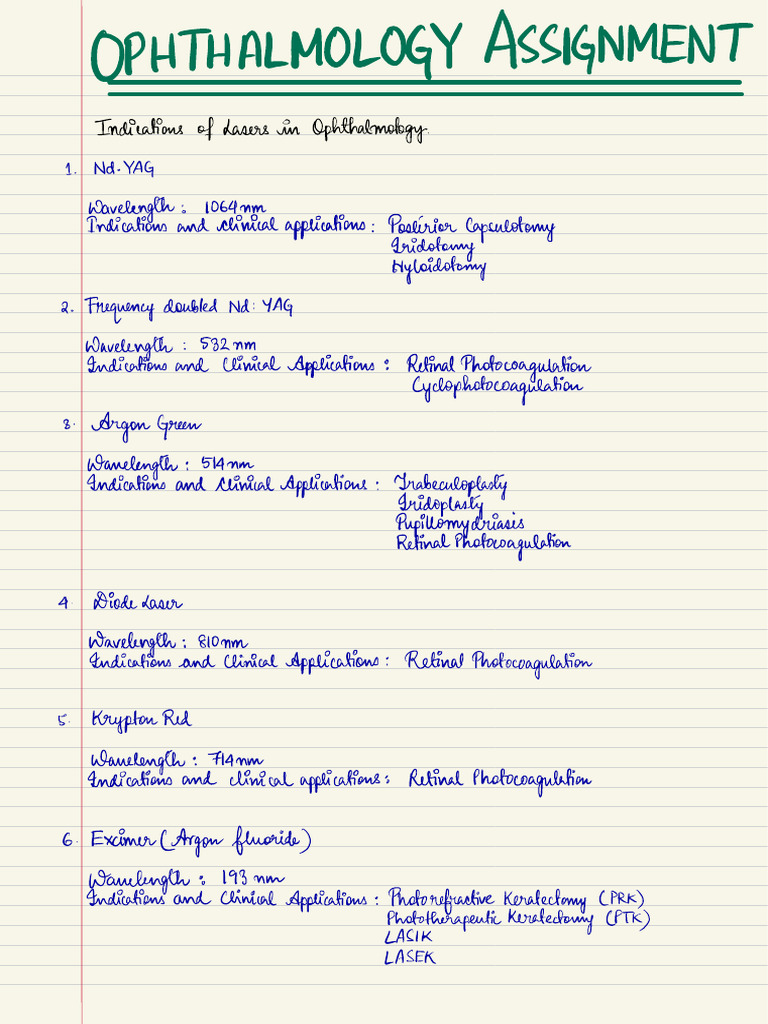 OPHTHALMOLOGY ASSIGNMENT
Indications of Lasers in Ophthalmology.
1. Nd-YAG
Wavelength : 1064nm
Indications and clinical applications : Posterior Capsulotomy
Iridotomy
Hyloidotomy
2. Frequency doubled Nd: YAG
Wavelength : 532 nm
Indications and Clinical Applications : Retinal Photocoagulation
Cyclophotocoagulation
3. Argon Green
Wavelength : 514nm
Indications and Clinical Applications : Trabeculoplasty
Iridoplasty
Pupillomydriasis
Retinal Photocoagulation
4. Diode Laser
Wavelength : 810nm
Indications and Clinical Applications : Retinal Photocoagulation
5. Krypton Red
Wavelength : 714nm
Indications and clinical applications : Retinal Photocoagulation
6. Excimer (Argon fluoride)
Wavelength : 193 nm
Indications and Clinical Applications : Photorefractive Keratectomy (PRK)
Phototherapeutic Keratectomy (PTK)
LASIK
LASEK